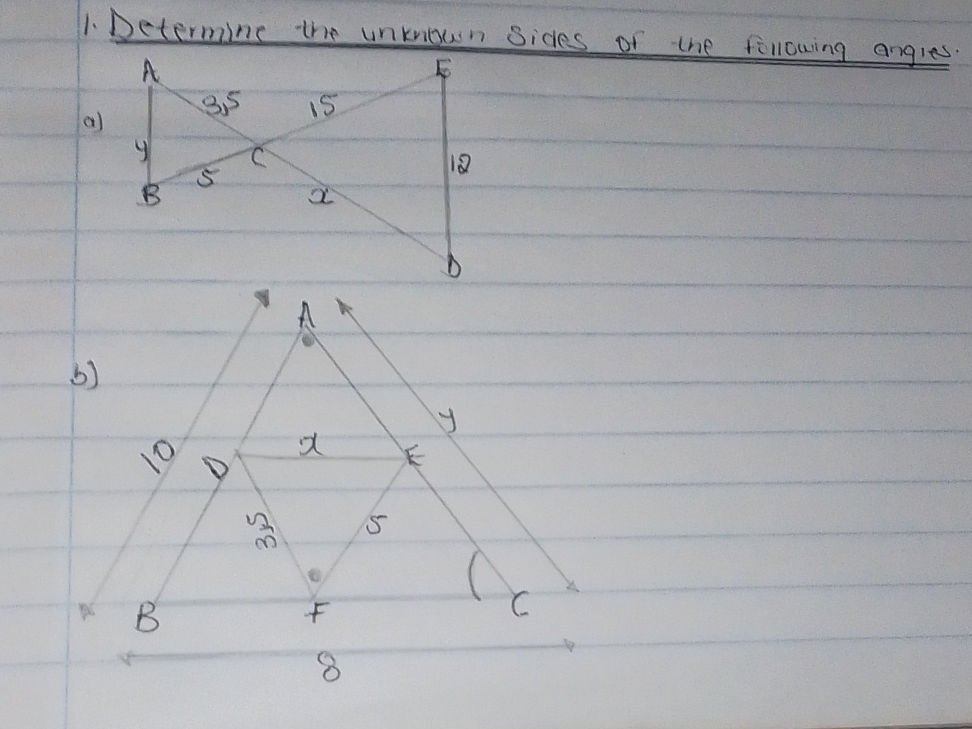 1. Determine the unknown sides of the following angles.
A E
a) 3,5 15
y C 12
B 5 x
D
A
b)
10 y
D x E
3,5 5
B F C
8